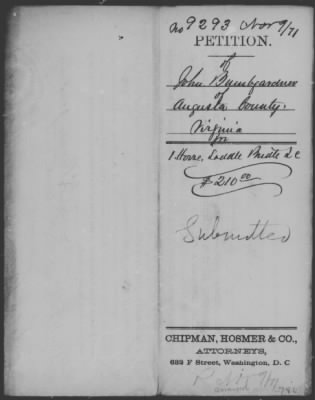 No 9293 Nov 9/71
PETITION.
of
John Bumbgardner
of
Augusta County.
Virginia
for
1 Horse, Saddle Bridle &c
$210.00
Submitted
CHIPMAN, HOSMER & CO.,
ATTORNEYS,
632 F Street, Washington, D. C